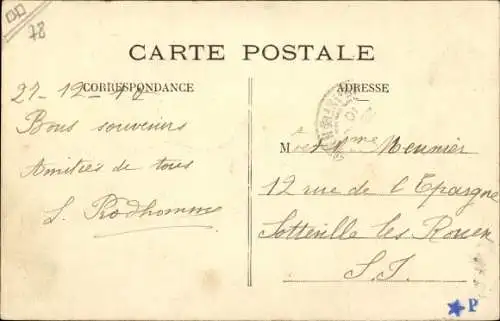 78
CARTE POSTALE
CORRESPONDANCE
ADRESSE
27-12-10
Bons souvenirs
Amitiés de tous
L. Prodhomme
M et Mme Meunier
12 rue de l'Epargne
Sotteville les Rouen
S. I.
P